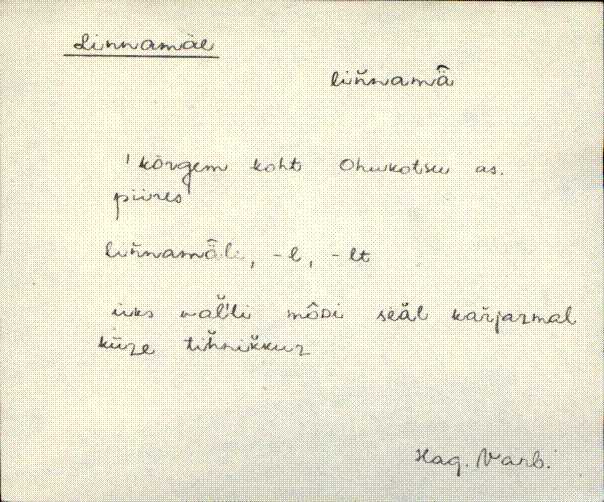 Linnamäe
liňnamä̂
'kõrgem koht Ohukotsu as.
piires'
liňnamä̂le, -l, -lt
üks vaľ̆li mô̂Di seä̆l kařjaᴢmaʟ
küᴢe tiȟniǩkuᴢ
Hag. Varb.